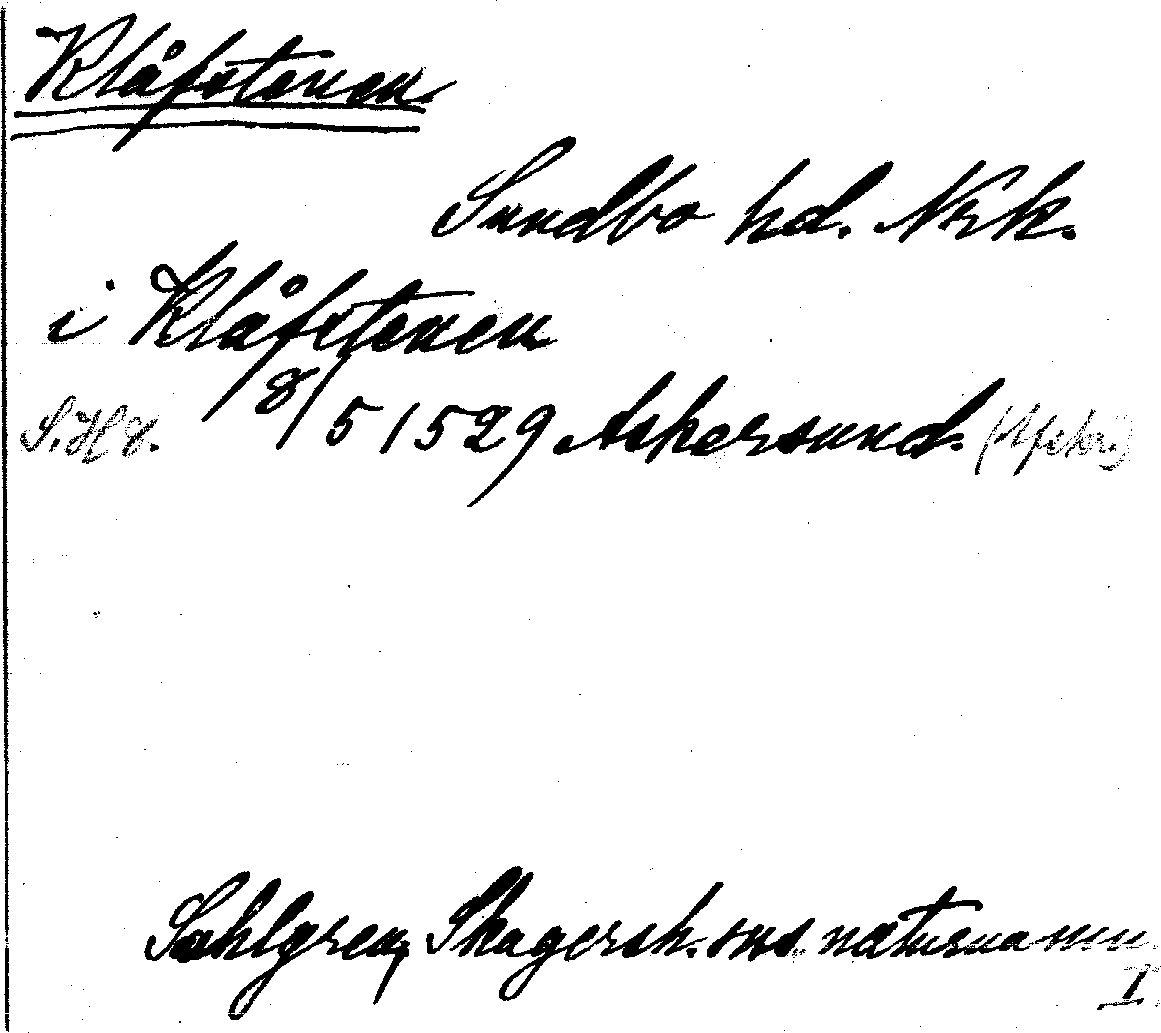 Klåfstenen
Sundbo hd. Nrk.
i Klåfstenen
S.H 8. 8/5 1529 Askersund. (Afskr.)
Sahlgren, Skagersh. sns naturnamn
I.